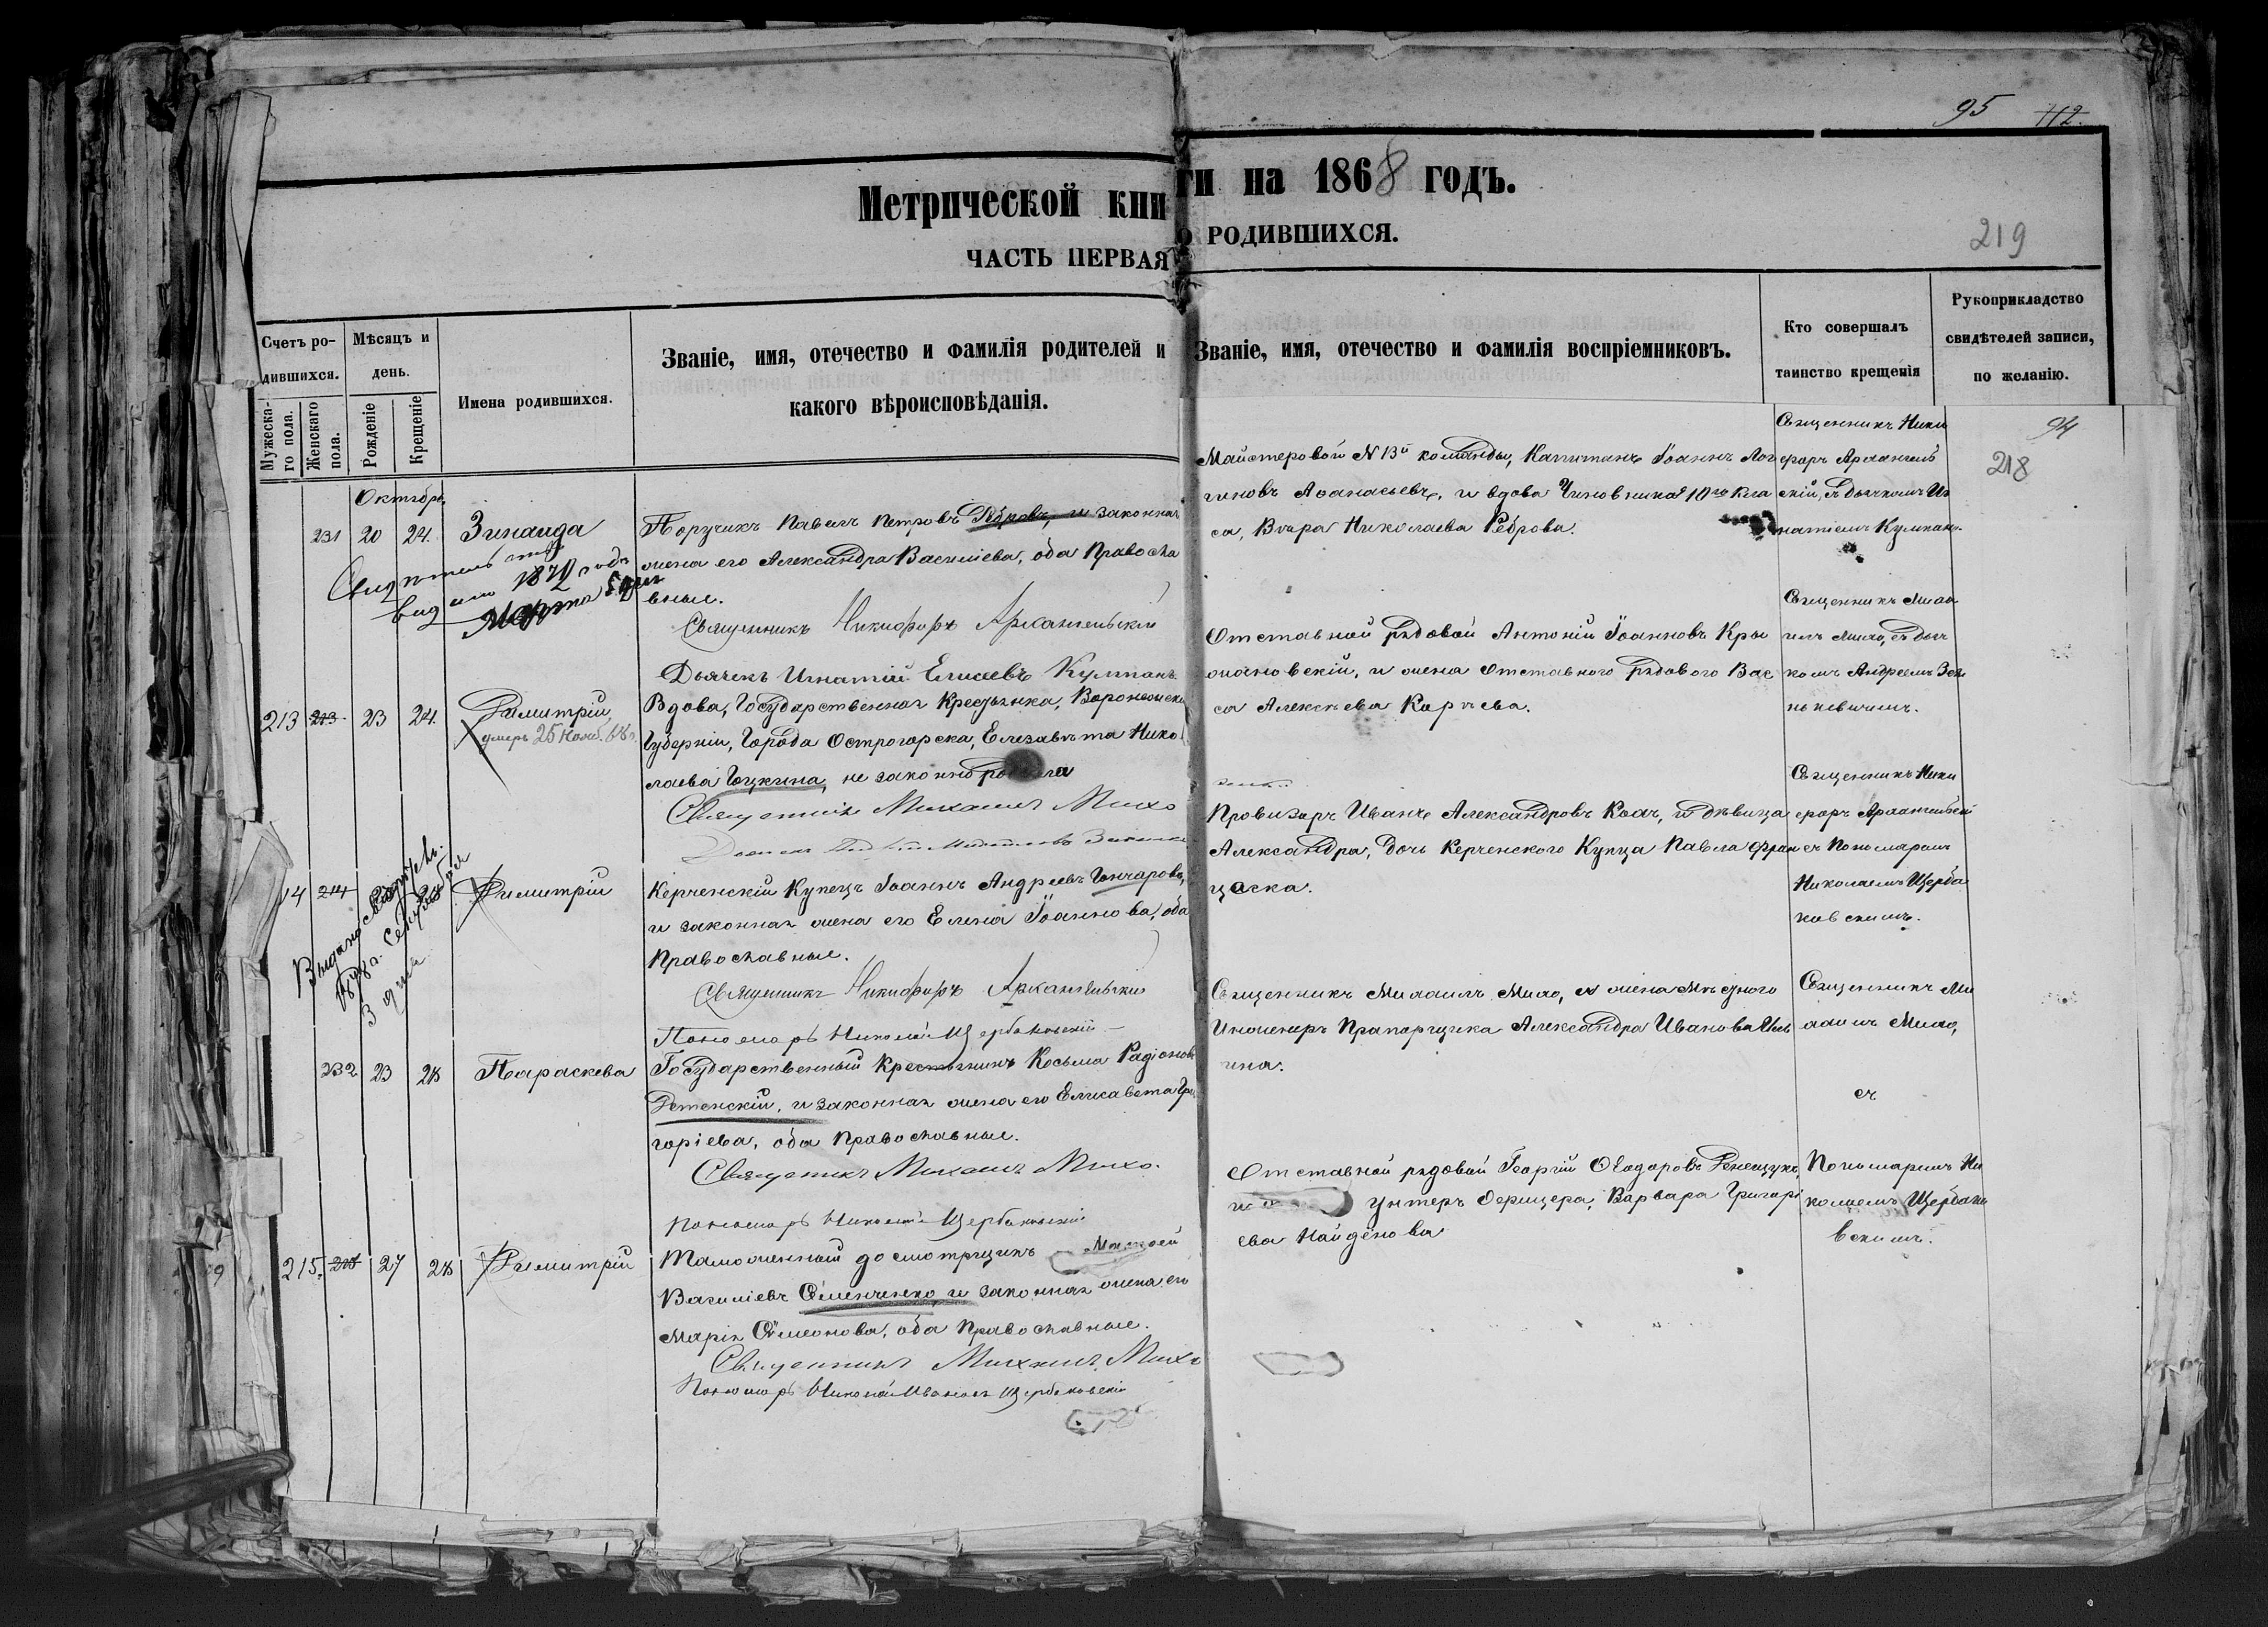 95 112.
Метрической книги на 1868 годъ.
ЧАСТЬ ПЕРВАЯ О РОДИВШИХСЯ.
219
Счетъ родившихся.
Мужескаго пола.
Женскаго пола.
Мѣсяцъ и день.
Рожденіе
Крещеніе
Имена родившихся.
Званіе, имя, отечество и фамилія родителей и
какого вѣроисповѣданія.
Званіе, имя, отечество и фамилія воспріемниковъ.
Кто совершалъ
таинство крещенія
Рукоприкладство
свидѣтелей записи,
по желанію.
94
218
Октябрь
231 20 24. Зинаида
Поручикъ Павелъ Петровъ Ребровъ, и законная
жена его Александра Василіева, оба Правосла
вные.
Священникъ Никифоръ Архангельскій
Дьячекъ Игнатій Елисеевъ Кулпанъ
Майстеровой N 13й команды, Капитанъ Іоаннъ Лог
гиновъ Аѳанасьевъ, и вдова Чиновника 10го Кла
са, Вѣра Николаева Реброва.
Священникъ Ники
форъ Архангель
скій, съ дьячкомъ Иг
натіемъ Кулпан.
1879 года
Марта
213 213 23 24. Димитрій
умеръ 25 Нояб. 68 г.
Вдова, Государственная Крестьянка, Воронежск
Губерніи, Города Острогорска, Елезавѣта Нико
лаева Гоцкина, не законно
Священникъ Михаилъ Михо
Отставной рядовой Антоній Іоанновъ Кры
жановскій, и жена отставного рядового Вас
са Алексѣева Карѣева.
Священникъ Миха
илъ Михо, съ дьяч
комъ Андреемъ
14 214 28 Димитрій
Выдано свидѣтель.
3 дня
Керченскій Купецъ Іоаннъ Андреевъ Гончаровъ,
и законная жена его Елена Іоаннова, оба
Православные.
Священникъ Никифоръ Архангельскій
Пономарь Николай Щербаковскій
Провизоръ Иванъ Александровъ Кохъ, и дѣвица
Александра, дочь Керченского Купца Павла Фран
цеска.
Священникъ Ники
форъ Архангельскій
съ Пономаремъ
Николаемъ Щерба
ковскимъ.
232 23 28 Параскева
Государственный Крестьянинъ Косьма Радіоновъ
Ретенскій, и законная жена его Елисавета Гри
горіева, оба Православные.
Священникъ Михаилъ Михо.
Пономарь Николай Щербаковскій
Священникъ Михаилъ Михо, и жена
Инженеръ Прапорщика Александра Иванова
ина.
Священникъ Ми
хаилъ Михо,
съ
215. 215 27 28 Димитрій
Таможенный досмотрщикъ Матвей
Василіевъ Семенченко, и законная жена его
Марія Симеонова, оба Православные.
Священникъ Михаилъ Михо
Пономарь Николай Ивановъ Щербаковскій
Отставной рядовой Георгій Ѳеодоровъ
и унтеръ Офицера, Варвара Григорі
ева Найденова
Пономаремъ Ни
колаемъ Щербако
вскимъ.